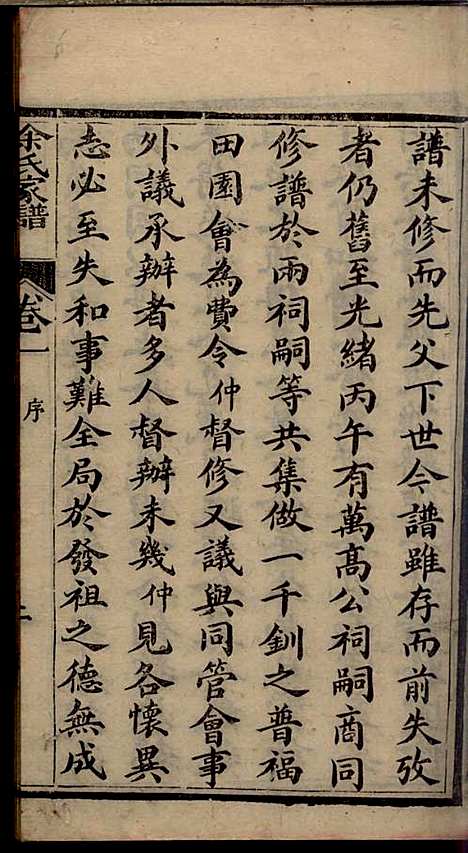 譜未修而先父下世今譜雖存而前失攷
者仍舊至光緒丙午有萬高公祠嗣商同
修譜於兩祠嗣等共集做一千釧之普福
田園會為費令仲督修又議與同管會事
外議承辦者多人督辦未幾仲見各懷異
志必至失和事難全局於發祖之德無成
余氏家譜 卷一 序